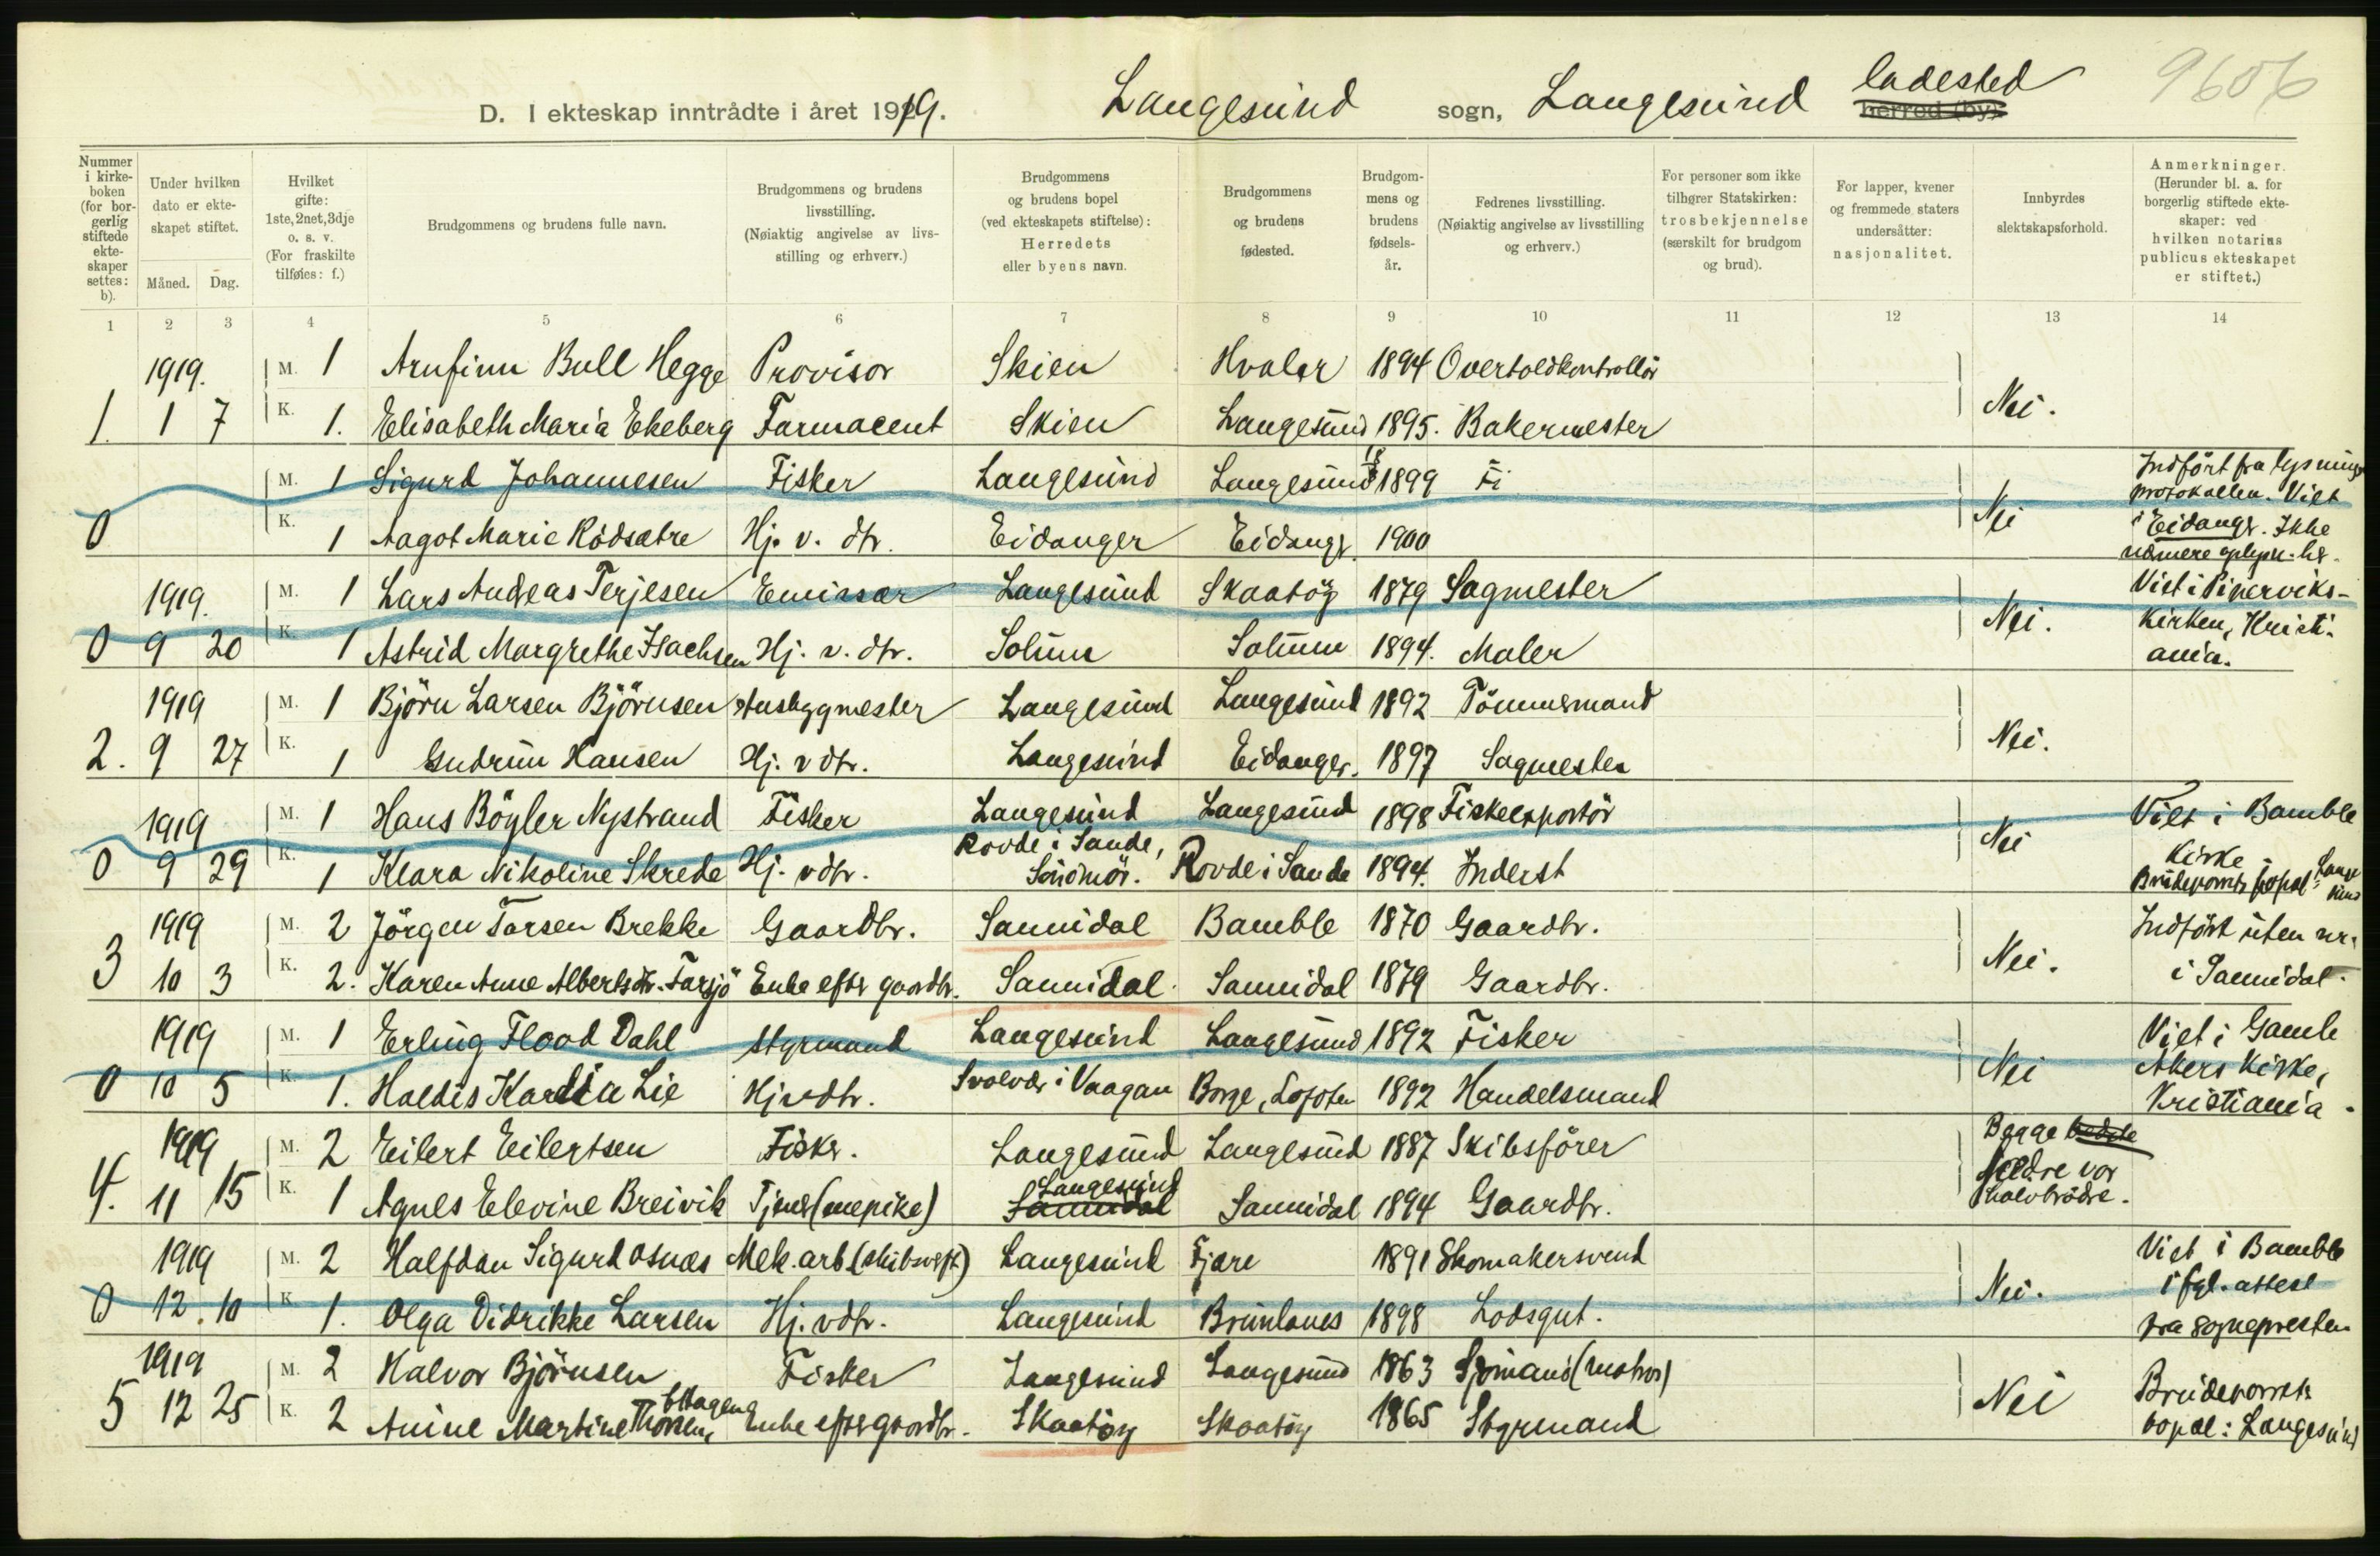 D. I ekteskap inntrådte i året 1919. Langesund sogn, Langesund ladested herred (by). 9606
Nummer i kirkeboken (for borgerlig stiftede ekteskaper settes: b).
Under hvilken dato er ekteskapet stiftet.
Måned. Dag.
Hvilket gifte: 1ste, 2net, 3dje o. s. v. (For fraskilte tilføies: f.)
Brudgommens og brudens fulle navn.
Brudgommens og brudens livsstilling. (Nøiaktig angivelse av livsstilling og erhverv.)
Brudgommens og brudens bopel (ved ekteskapets stiftelse): Herredets eller byens navn.
Brudgommens og brudens fødested.
Brudgommens og brudens fødselsår.
Fedrenes livsstilling. (Nøiaktig angivelse av livsstilling og erhverv.)
For personer som ikke tilhører Statskirken: trosbekjennelse (særskilt for brudgom og brud).
For lapper, kvener og fremmede staters undersåtter: nasjonalitet.
Innbyrdes slektskapsforhold.
Anmerkninger. (Herunder bl. a. for borgerlig stiftede ekteskaper: ved hvilken notarius publicus ekteskapet er stiftet.)
1 2 3 4 5 6 7 8 9 10 11 12 13 14
1919. M. 1 Arnfinn Bull Hegge Provisor Skien Hvaler 1894 Overtoldkontrollör
1. 1 7 K. 1. Elisabeth Maria Ekeberg Farmaceut Skien Langesund 1895. Bakermester Nei.
M. 1 Sigurd Johannesen Fisker Langesund Langesund 1899 Fi Indfört fra lysnings protokollen. Viet
0 K. 1 Aagot Marie Rödsætre Hj. v. dtr. Eidanger Eidangr. 1900 Nei i Eidangr. Ikke nærmere oplysn. her.
1919. M. 1 Lars Andreas Terjesen Emissær Langesund Skaatöy 1879 Sagmester Viet i Piperviks-
0 9 20 K. 1 Astrid Margrethe Isachsen Hj. v. dtr. Solum Solum 1894. Maler Nei. kirken, Kristiania.
1919 M. 1 Björn Larsen Björnsen Husbygmester Langesund Langesund 1892 Tömmermand
2. 9 27 K. 1 Gudrun Hansen Hj. v dtr. Langesund Eidanger. 1897 Sagmester Nei.
1919 M. 1 Hans Böyler Nystrand Fisker Langesund Langesund 1898 Fiskeexportör Viet i Bamble
0 9 29 K. 1 Klara Nikoline Skrede Hj. v dtr. Rovde i Sande, Söndmör. Rovde i Sande 1894. Inderst Nei kirke Brudeparrets bopæl: Langesund
1919 M. 2 Jörgen Tarsen Brekke Gaardbr. Sannidal Bamble 1870 Gaardbr. Indfört uten nr.
3 10 3 K. 2. Karen Anne Albertsdtr. Farsjö Enke efter gaardbr. Sannidal Sannidal 1879 Gaardbr. Nei. i Sannidal.
1919 M. 1 Erling Flood Dahl Styrmand Langesund Langesund 1892 Fisker Viet i Gamle
0 10 5 K. 1. Haldis Kardia Lie Hj vdtr. Svolvær i Vaagan Borge, Lofoten 1892 Handelsmand Nei Akers kirke, Kristiania.
1919 M. 2 Eilert Eilertsen Fiskr. Langesund Langesund 1887 Skibsförer Begges
4. 11 15 K. 1 Agnes Elevine Breivik Tjener (nepike) Langesund Sannidal Sannidal 1894 Gaardbr. fædre var halvbrödre.
1919 M. 2 Halfdan Sigurd Osnæs Mek. arb. (skibsverft) Langesund Fjære 1891 Skomakersvend Viet i Bamble
0 12. 10 K. 1. Olga Didrikke Larsen Hj. vdtr. Langesund Brunlanes 1898 Lodsgut. Nei. i fgl. attest fra sognepresten
1919 M. 2 Halvor Björnsen Fisker Langesund Langesund 1863 Sjömand (matros) Brudeparrets
5 12 25 K. 2 Anine Martine Thorsen, Enke efter gaardbr. Skaatöy Skaatöy 1865 Styrmand Nei bopæl: Langesund